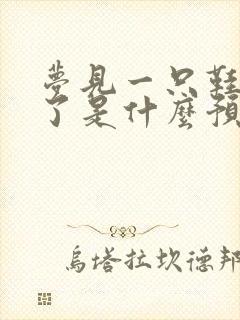 夢見一只鞋
了是什麼預
烏塔拉坎德邦